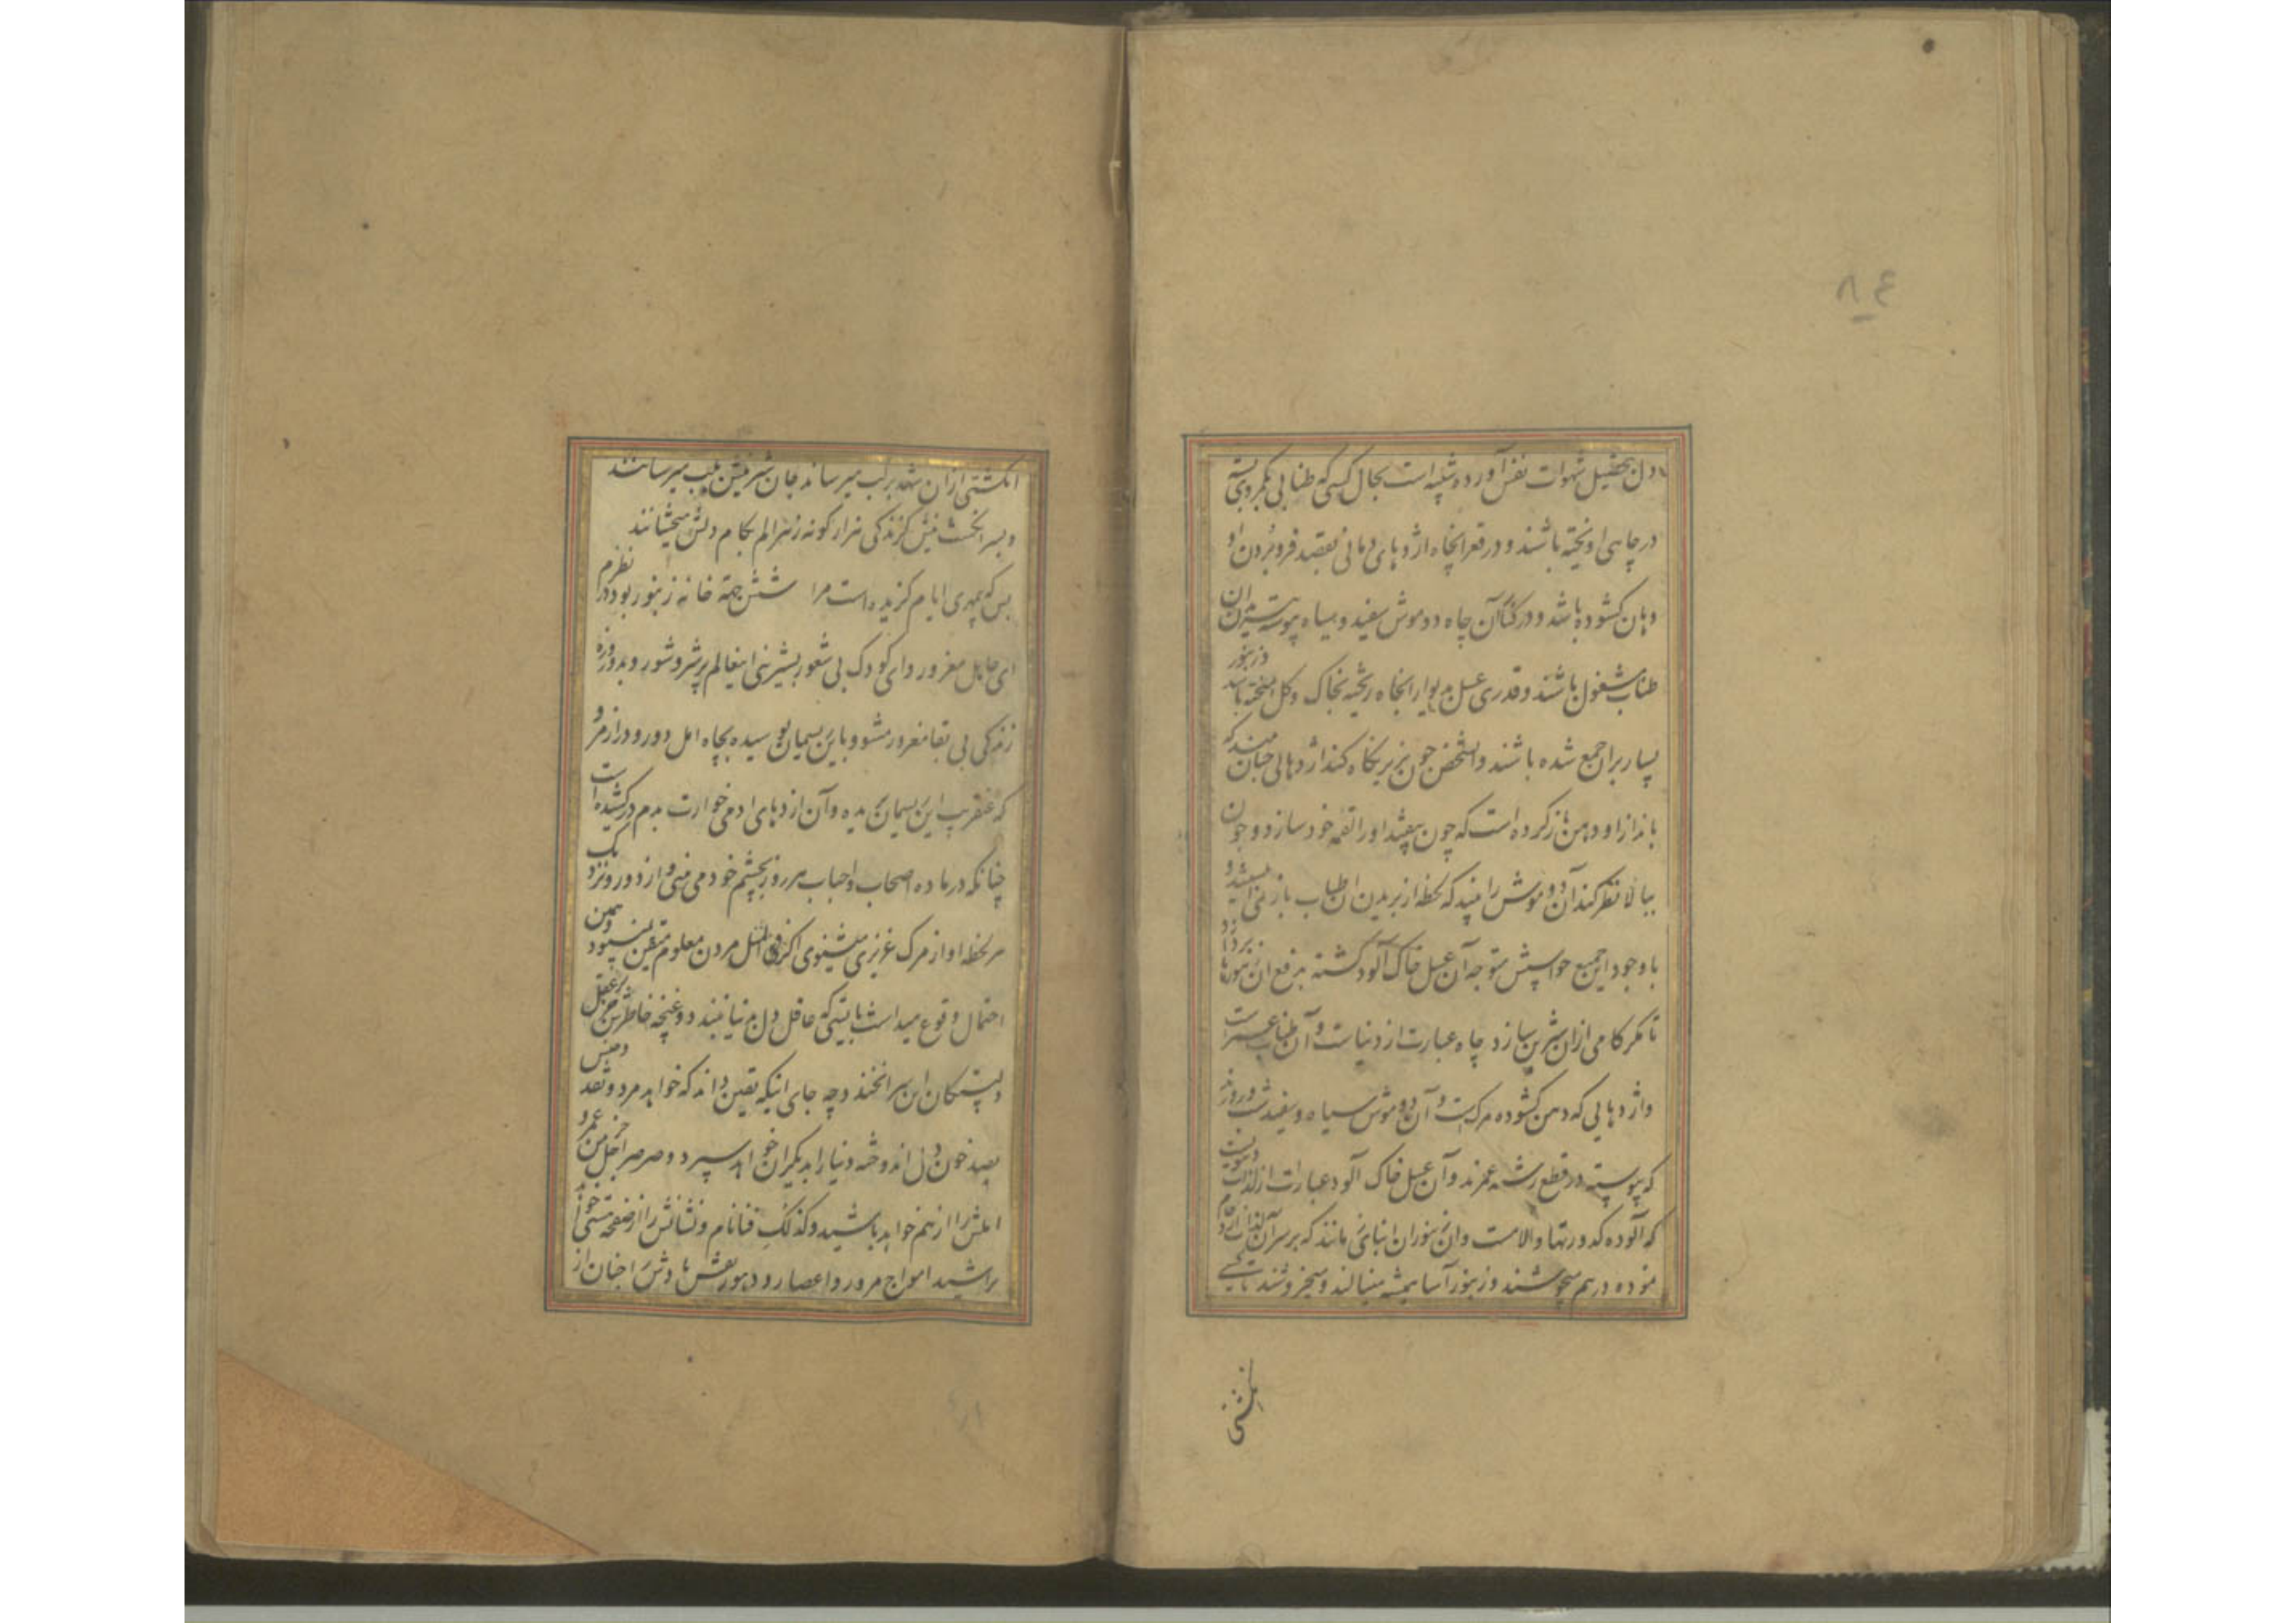 ۸۴
دل بتحصیل شهوات نفس آورده شبیه است بحال کسی که طنابی بکمر او بسته
در چاهی اویخته باشند و در قعر انچاه اژدهای دمانی بقصد فرو بردن او
دهان کشوده باشد و در کنار آن چاه دو موش سفید و سیاه پیوسته ببریدن ان
طناب مشغول باشند و قدری عسل بدیوار انچاه ریخته بخاک و کل امیخته باشد و زنبور
بسیار بران جمع شده باشند و انشخص چون بزیر نکاه کند اژدهایی چنان بیند که
بانداز او دهن باز کرده است که چون بیفتد او را لقمه خود سازد و چون
ببالا نظر کند آن دو موش را بیند که لحظه از بریدن ان طناب باز نمی ایستند و
با وجود این جمیع حواسش متوجه آن عسل خاک آلود کشته بدفع ان زنبورها پردازد
تا مکر کامی ازان شیرین سازد چاه عبارت از دنیاست و آن طناب عمر است
و اژدهایی که دهن کشوده مرکست و آن دو موش سیاه و سفید شب و روزند
که پیوسته در قطع رشته عمرند و آن عسل خاک آلود عبارات از لذت دنیویست
که آلوده کدورتها و الامست و ان زنبوران ابنای زمانند که بر سر آن لذات ازدحام
نموده در هم میجوشند و زنبور آسا همیشه مینالند و میخروشند تا یکی
انکشتی
انکشتی ازان شهد بر لب میرساند جان شیرینش بلب میرسانند
و بسر انکشت نیش کزندکی هزار کونه زهر الم بکام دلش میچشانند
بس که بیمهری ایام کزیده است مرا شش جهة خانه زنبور بود در نظرم
ای جاهل مغرور و ای کودک بی شعور بشیرینی اینعالم پر شر و شور و بدو روزه
زندکی بی بقا مغرور مشو و باین ریسمان پوسیده بچاه امل دور و دراز مرو
که عنقریب این ریسمان بریده و آن ازدهای ادمی خوارت بدم در کشیده است
چنانکه در ماده اصحاب و احباب هر روز بچشم خود می بینی و از دور و نزدیک
هر لحظه اواز مرک عزیزی میشنوی اکر فی المثل مردن معلوم متیقن نمیبود و همین
احتمال وقوع میداشت بایستی که عاقل دل بدنیا نبندد و غنچه خاطرش جز بر عقل
وبستکان این سرا نخندد چه جای اینکه یقین داند که خواهد مرد و نقد و جنس
بصد خون دل اندوخته دنیا را بدیکران خواهد سپرد و صرصر اجل خرمن عمر و
املش را از هم خواهد پاشید و کذلک فنا نام و نشانش را از صفحه هستی خواهد
تراشید امواج مرور و اعصار و دهور نقش یادش را چنان از